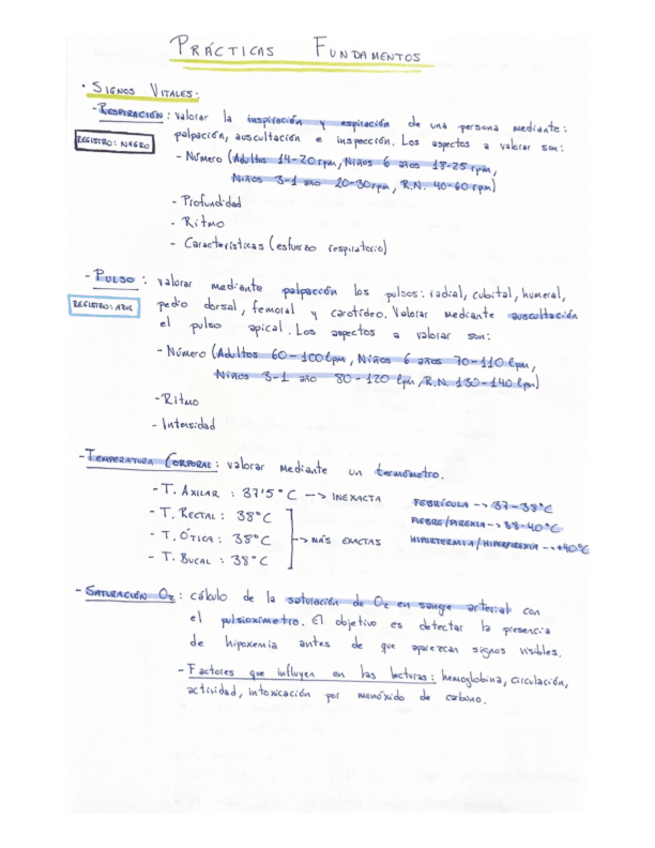 PRÁCTICAS FUNDAMENTOS
· SIGNOS VITALES:
- RESPIRACIÓN: valorar la inspiración y espiración de una persona mediante:
REGISTRO: NEGRO
palpación, auscultación e inspección. Los aspectos a valorar son:
- Número (Adultos 14-20 rpm, Niños 6 años 18-25 rpm,
Niños 3-1 año 20-30rpm, R.N. 40-60 rpm)
- Profundidad
- Ritmo
- Características (esfuerzo respiratorio)
- PULSO: valorar mediante palpación los pulsos: radial, cubital, humeral,
REGISTRO: AZUL
pedio dorsal, femoral y carotídeo. Valorar mediante auscultación
el pulso apical. Los aspectos a valorar son:
- Número (Adultos 60-100 lpm, Niños 6 años 70-110 lpm,
Niños 3-1 año 80-120 lpm, R.N. 130-140 lpm)
- Ritmo
- Intensidad
- TEMPERATURA CORPORAL: valorar mediante un termómetro.
- T. AXILAR: 37'5°C --> INEXACTA
- T. RECTAL: 38°C
- T. ÓTICA: 38°C --> MÁS EXACTAS
- T. BUCAL: 38°C
FEBRÍCULA --> 37-38°C
FIEBRE/PIREXIA --> 38-40°C
HIPERTERMIA/HIPERPIREXIA --> +40°C
- SATURACIÓN O₂: cálculo de la saturación de O₂ en sangre arterial con
el pulsioxímetro. El objetivo es detectar la presencia
de hipoxemia antes de que aparezcan signos visibles.
- Factores que influyen en las lecturas: hemoglobina, circulación,
actividad, intoxicación por monóxido de carbono.